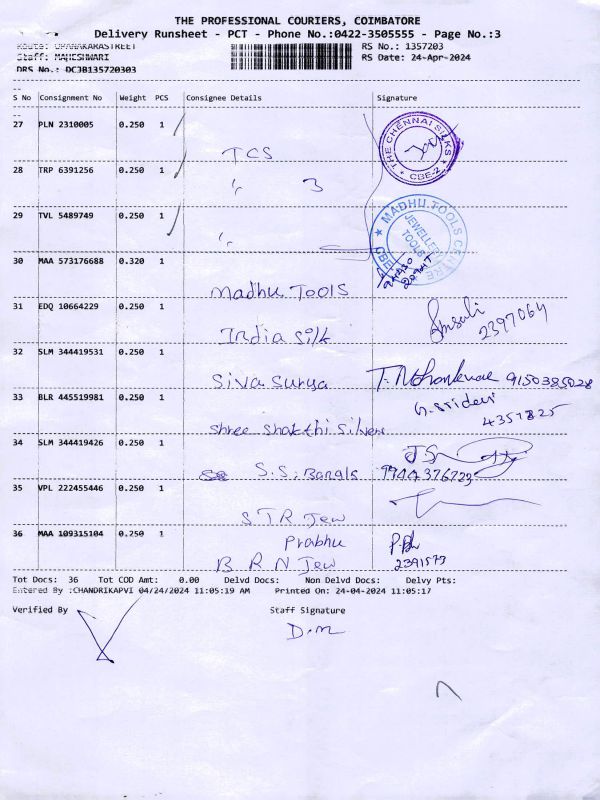 THE PROFESSIONAL COURIERS, COIMBATORE
Delivery Runsheet - PCT - Phone No.:0422-3505555 - Page No.:3
Route: UPANAKARASTREET RS No.: 1357203
Staff: MAHESHWARI RS Date: 24-Apr-2024
DRS No.: DCJB135720303
S No Consignment No Weight PCS Consignee Details Signature
27 PLN 2310005 0.250 1 TCS
THE CHENNAI SILKS CBE-2
28 TRP 6391256 0.250 1 " 3
29 TVL 5489749 0.250 1 "
MADHU TOOLS CENTRE JEWELLERY TOOLS CBE
30 MAA 573176688 0.320 1 Madhu Tools
31 EDQ 10664229 0.250 1 India Silk 2397064
32 SLM 344419531 0.250 1 Siva Surya 9150385028
33 BLR 445519981 0.250 1 Shree Shakthi Silver G. Sridevi 4357825
34 SLM 344419426 0.250 1 S.S. Bangls 9944376723
35 VPL 222455446 0.250 1 STR Jew
36 MAA 109315104 0.250 1 Prabhu
B R N Jew 2391573
Tot Docs: 36 Tot COD Amt: 0.00 Delvd Docs: Non Delvd Docs: Delvy Pts:
Entered By :CHANDRIKAPVI 04/24/2024 11:05:19 AM Printed On: 24-04-2024 11:05:17
Verified By Staff Signature
D.M